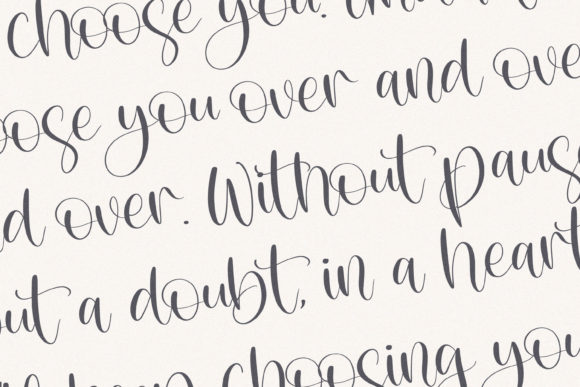 choose you.
oose you over and ove
d over. Without pause
out a doubt, in a heart
keep choosing you